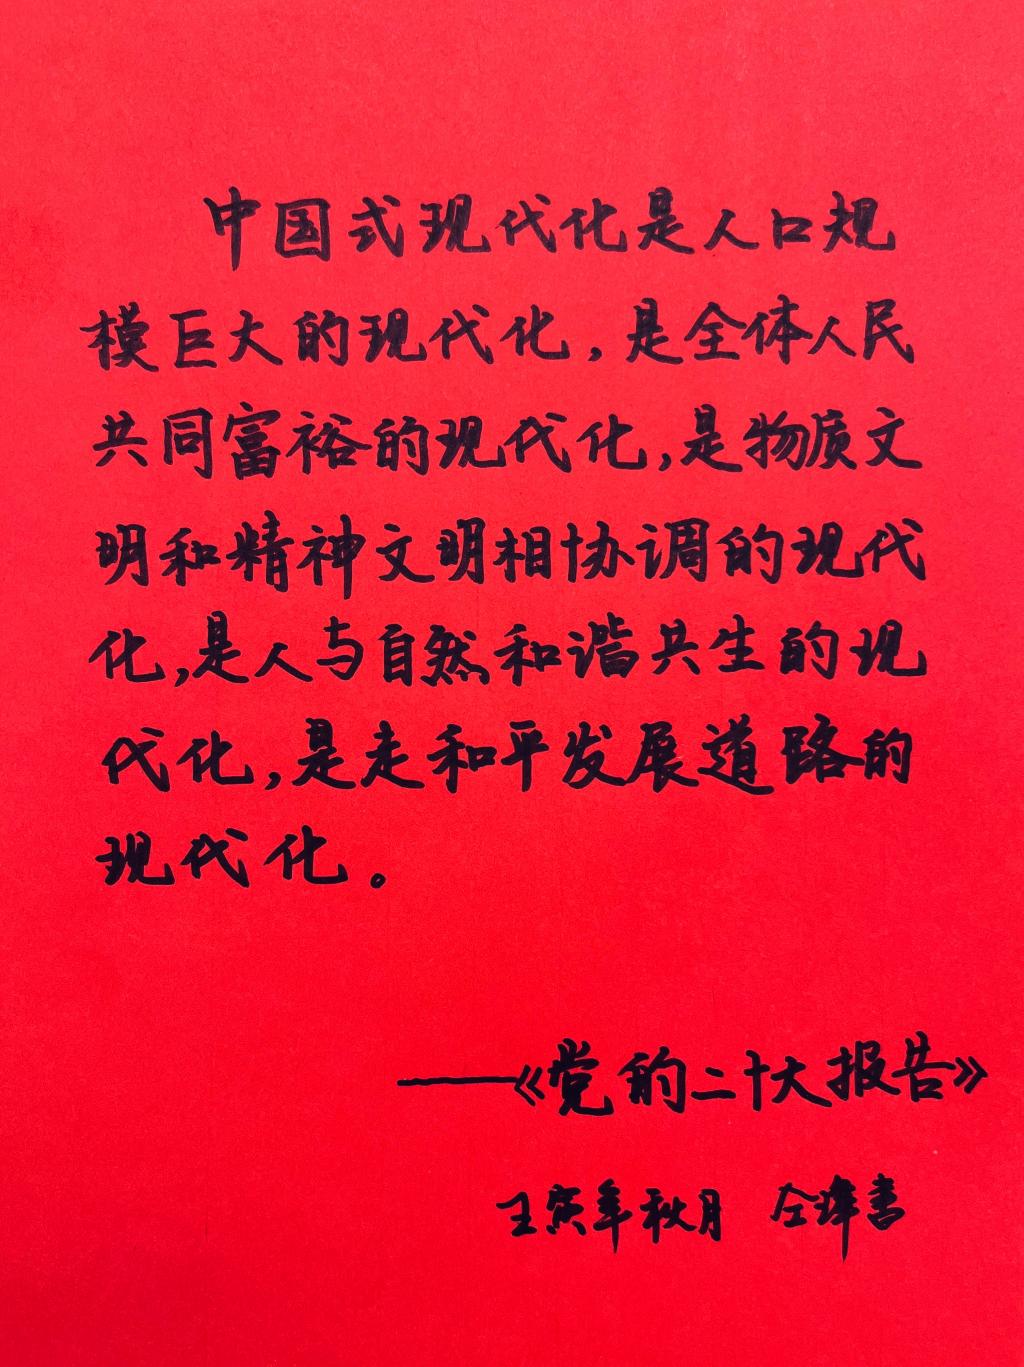 中国式现代化是人口规
模巨大的现代化，是全体人民
共同富裕的现代化，是物质文
明和精神文明相协调的现代
化，是人与自然和谐共生的现
代化，是走和平发展道路的
现代化。
——《党的二十大报告》
壬寅年秋月 书